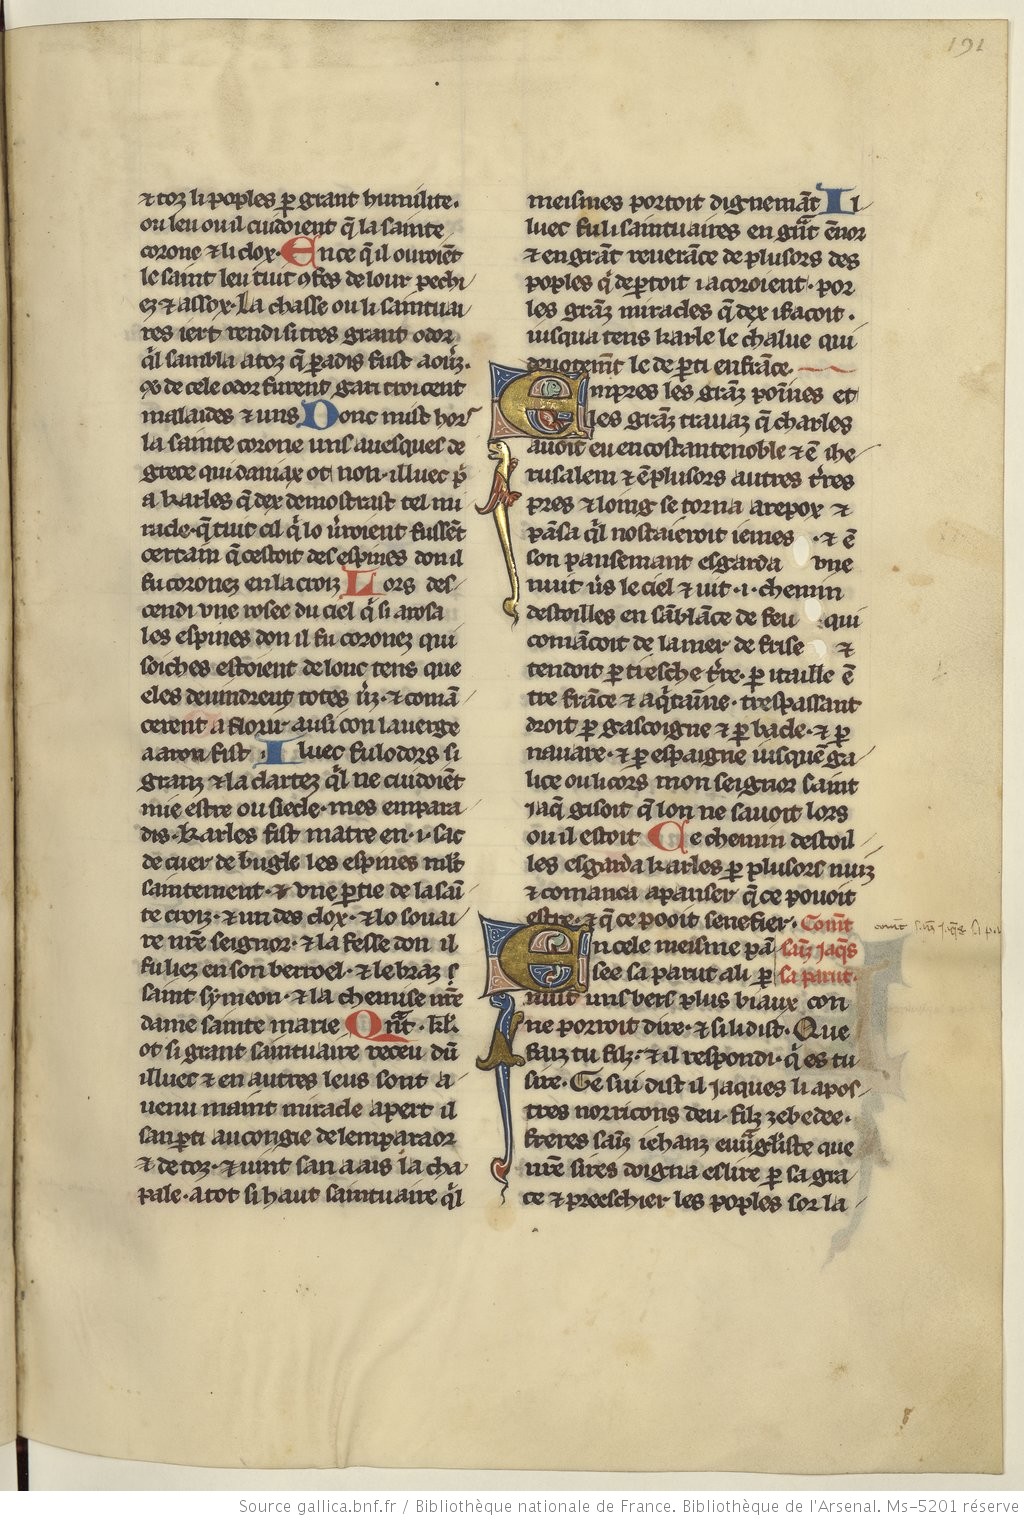 191
⁊ toz li poples ꝑ grant humilite.
ou leu ou il cuidoient q̃ la sainte
corone ⁊ li clox. En ce q̃ il ouroiẽt
le saint leu tuit ꝯfes de lour pechi
ez ⁊ assox. La chasse ou li saintuai
res iert rendi si tres grant odor
q̃l sambla a toz q̃ ꝑadis fust aouӳ.
⁊ de cele odor furent gari troi cent
malaides ⁊ uns Donc mist hors
la sainte corone uns auesques de
grece qui daniax ot non. illuec ꝓ
a karles q̃ dex demostrast tel mi
racle. q̃ tuit cil q̃ lo ũroient fussẽt
certain q̃ cestoit des espines don il
fu coronez en la croiz Lors des
cendi vne rosee du ciel q̃ si arosa
les espines don il fu coronez qui
soiches estoient de lonc tens que
eles deuindrent totes ũz. ⁊ comã
cerent a florir ausi con la uerge
aaron fist Iluec fu lodors si
granz ⁊ la clartez q̃l ne cuidoiẽt
mie estre ou siecle. mes em para
dis. karles fist matre en .i. sac
de cuer de bugle les espines mlt̃
saintement. ⁊ vne ꝑtie de la sañ
te croiz. ⁊ un des clox. ⁊ lo souai
re nr̃e seignor. ⁊ la fesse don il
fu liez en son berroel. ⁊ le braz s
saint symeon. ⁊ la chemise nr̃e
dame sainte marie Qnãt. kl̃.
ot si grant saintuaire receu dũ
illuec ⁊ en autres leus sont a
uenu maint miracle apert il
san ꝑti au congie de lemparaor
⁊ de toz. ⁊ uint san a ais la cha
pale. a tot si haut saintuaire q̃l
meismes portoit dignemãt Il
luec fu li saintuaires en grãt ẽnor
⁊ en grãt reuerãce de plusors des
poples q̃ de ꝑtoit i acoroient. por
les grãz miracles q̃ dex i facoit.
iusqua tens karle le chalue qui
deuotemẽt le de ꝑti en frãce.
Empres les grãz poĩnes et
les grãz trauaz q̃ charles
auoit eu en costantenoble ⁊ ẽ ihe
rusalem ⁊ ẽ plusors autres tr̃res
pres ⁊ loing se torna a repox ⁊
pãsa q̃l nostaieroit iemes . ⁊ ẽ
son pansemant esgarda vne
nuit ũs le ciel ⁊ uit .i. chemin
destoilles en sãblãce de feu qui
comãcoit de la mer de frise ⁊
tendoit ꝑ tiesche tr̃re. ꝑ itaille ẽ
tre frãce ⁊ aq̃taĩne. trespassant
droit ꝑ gascoigne ⁊ ꝑ bacle. ⁊ ꝑ
nauare. ⁊ ꝑ espaigne iusquẽ ga
lice ou li cors mon seignor saint
jaq̃ gisoit q̃ lon ne sauoit lors
ou il estoit Ce chemin destoil
les esgarda karles ꝑ plusors nuiz
⁊ comanca a panser q̃ ce pouoit
estre. ⁊ q̃ ce pooit senefier. Comẽt
En cele meisme pã sañz jaq̃s
see sa parut a li ꝑ sa parut.
nuit uns bers plus biaux con
ne porroit dire. ⁊ si li dist. Que
faiz tu filz. ⁊ il respondi. q̃ es tu
sire. Ge sui dist il jaques li apos
tres norricons deu. filz zebedee.
freres saĩz iehanz euuãgliste que
nr̃e sires doigna eslire ꝑ sa gra
ce ⁊ preeschier les poples sor la
Source gallica.bnf.fr / Bibliothèque nationale de France. Bibliothèque de l'Arsenal. Ms-5201 réserve